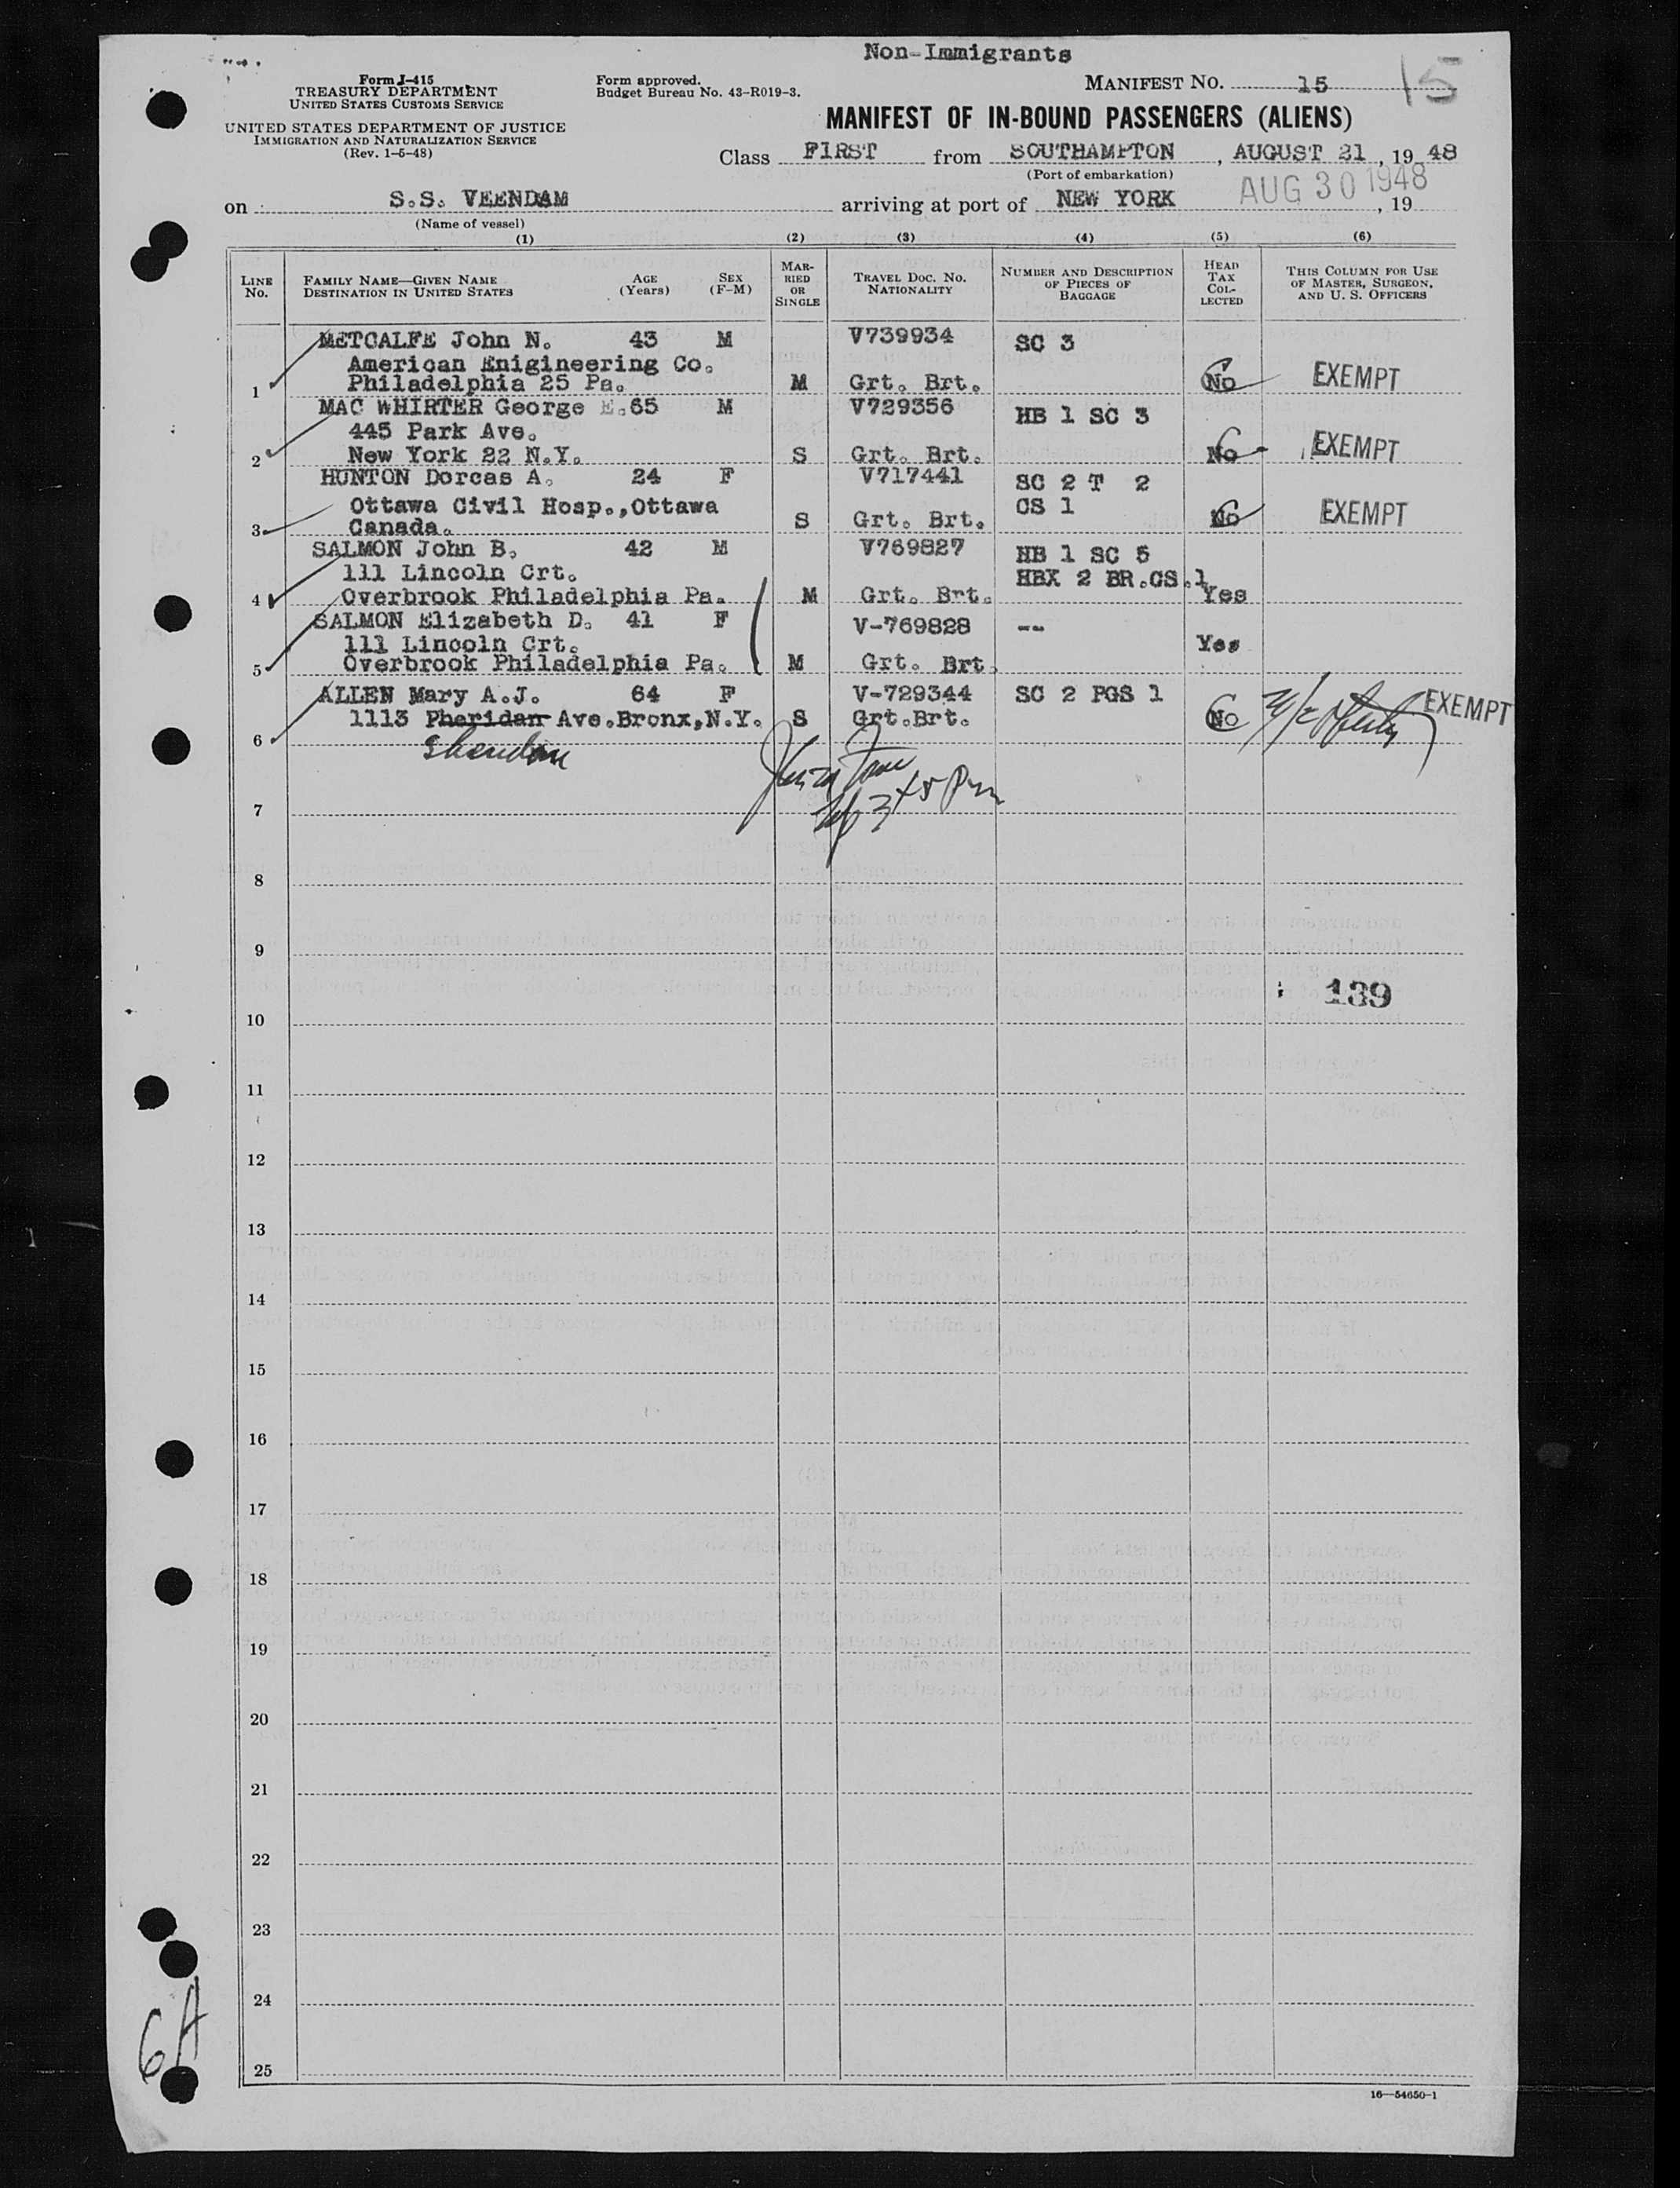 Non-Immigrants
Form I-415
TREASURY DEPARTMENT
UNITED STATES CUSTOMS SERVICE
UNITED STATES DEPARTMENT OF JUSTICE
IMMIGRATION AND NATURALIZATION SERVICE
(Rev. 1-5-48)
Form approved.
Budget Bureau No. 43-R019-3.
MANIFEST NO. 15 15
MANIFEST OF IN-BOUND PASSENGERS (ALIENS)
Class FIRST from SOUTHAMPTON, AUGUST 21, 19 48
(Port of embarkation)
on S.S. VEENDAM arriving at port of NEW YORK AUG 30 1948, 19
(Name of vessel)
(1) (2) (3) (4) (5) (6)
LINE No. FAMILY NAME—GIVEN NAME DESTINATION IN UNITED STATES AGE (Years) SEX (F-M) MARRIED OR SINGLE TRAVEL DOC. NO. NATIONALITY NUMBER AND DESCRIPTION OF PIECES OF BAGGAGE HEAD TAX COLLECTED THIS COLUMN FOR USE OF MASTER, SURGEON, AND U. S. OFFICERS
METCALFE John N. 43 M V739934 SC 3
American Enigineering Co.
1 Philadelphia 25 Pa. M Grt. Brt. No EXEMPT
MAC WHIRTER George E. 65 M V729356 HB 1 SC 3
445 Park Ave.
2 New York 22 N.Y. S Grt. Brt. No EXEMPT
HUNTON Dorcas A. 24 F V717441 SC 2 T 2
Ottawa Civil Hosp.,Ottawa CS 1
3 Canada. S Grt. Brt. No EXEMPT
SALMON John B. 42 M V769827 HB 1 SC 5
111 Lincoln Crt. HBX 2 BR.CS.1
4 Overbrook Philadelphia Pa. M Grt. Brt. Yes
SALMON Elizabeth D. 41 F V-769828 --
111 Lincoln Crt. Yes
5 Overbrook Philadelphia Pa. M Grt. Brt.
ALLEN Mary A.J. 64 F V-729344 SC 2 PGS 1 EXEMPT
1113 Pheridan Ave.Bronx,N.Y. S Grt.Brt. No
6 Sheridan
45 Pm
7
8
9
139
10
11
12
13
14
15
16
17
18
19
20
21
22
23
24
25
6A
16—54650-1